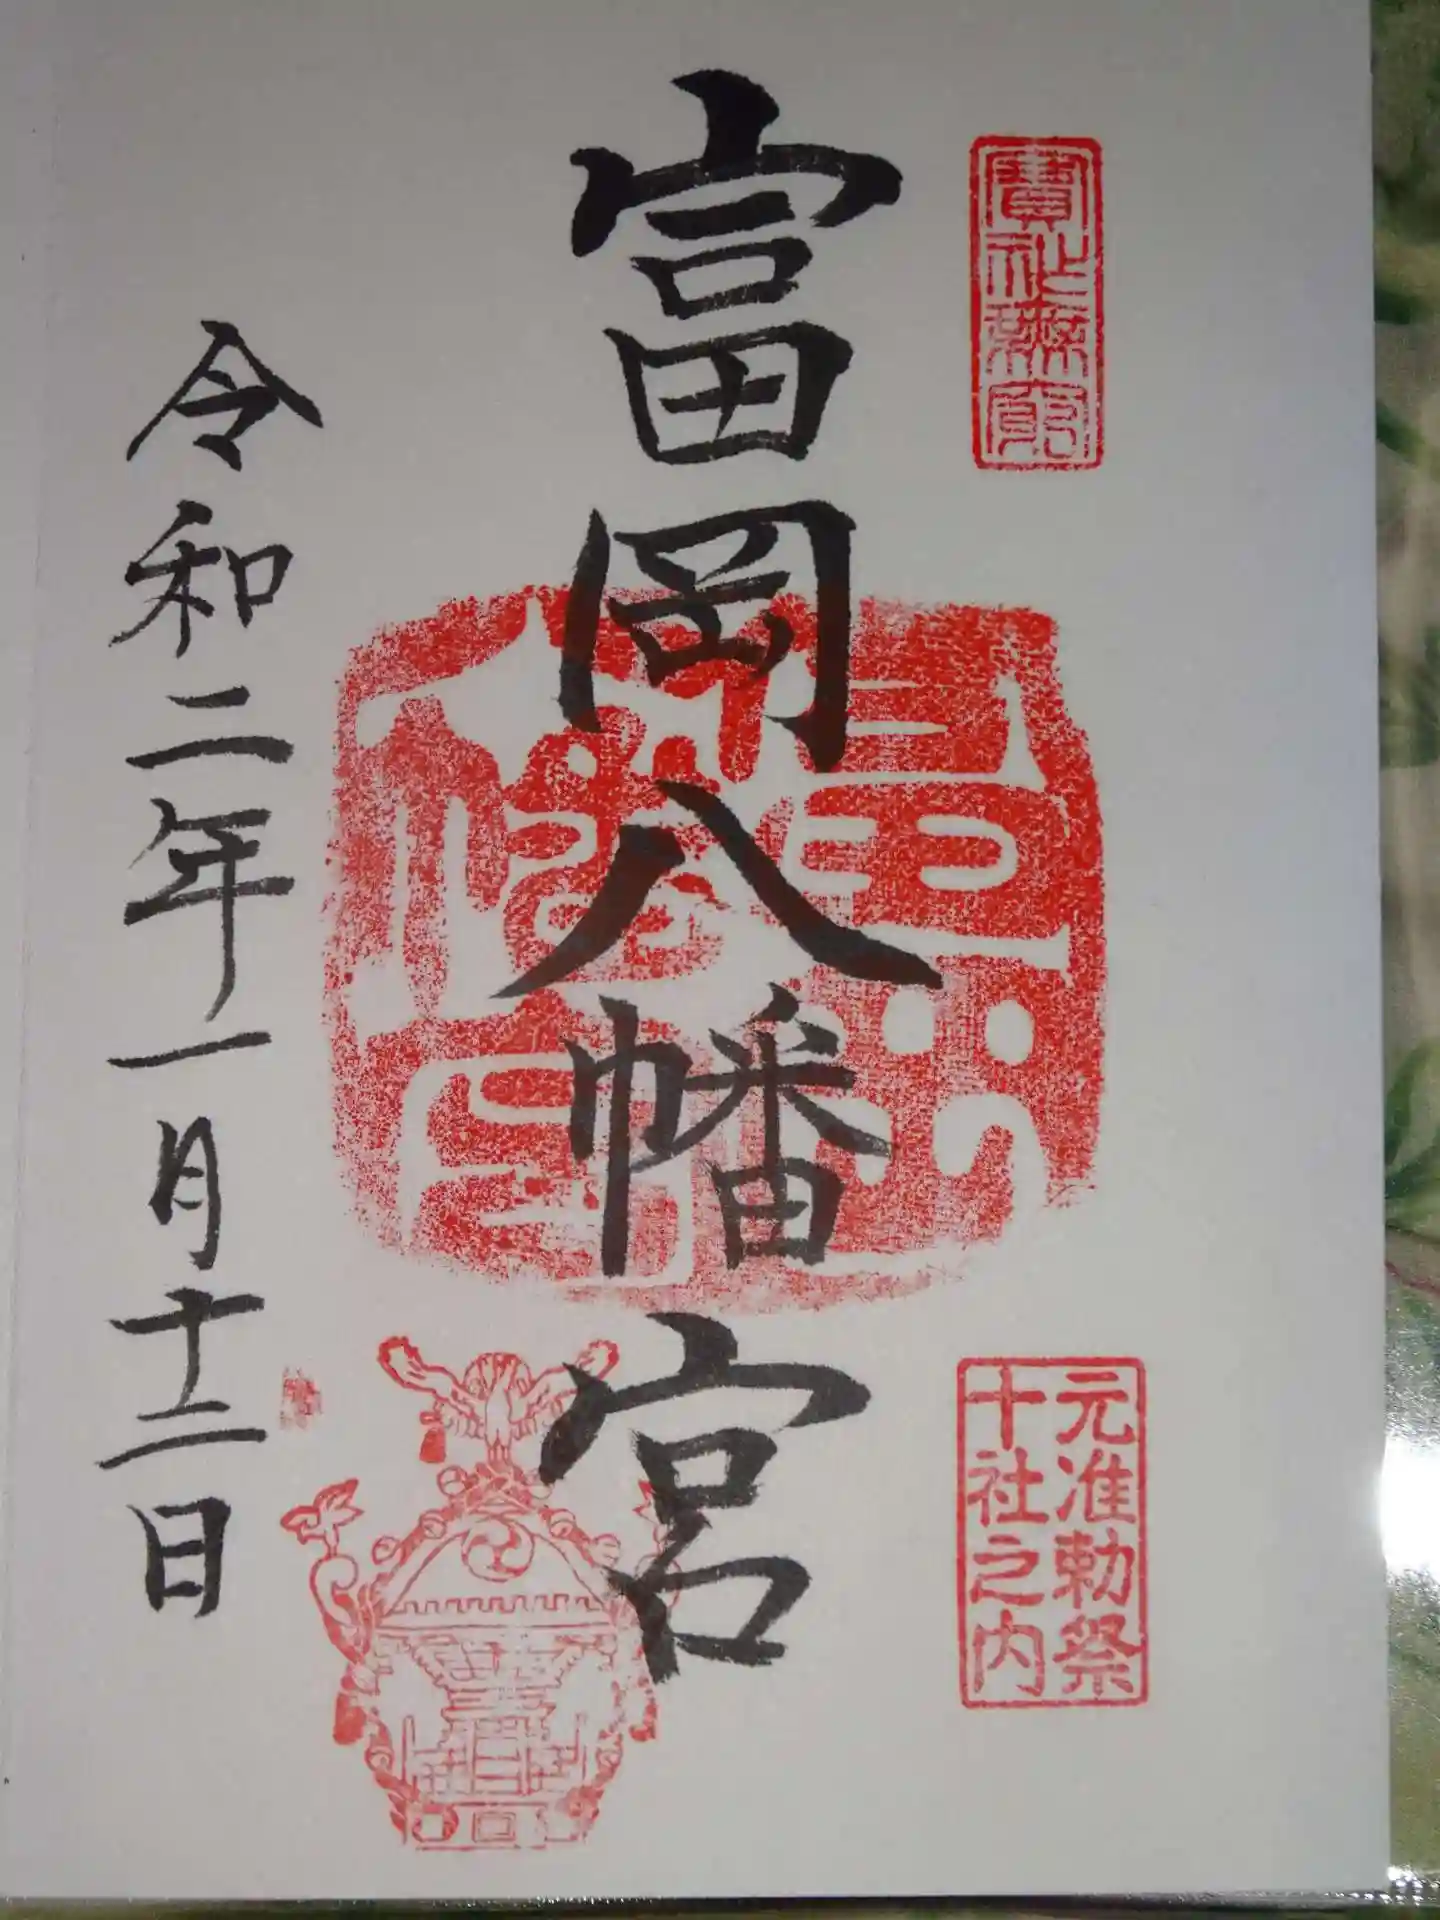 寶祚無窮
富岡八幡宮
元准勅祭
十社之内
令和二年一月十二日